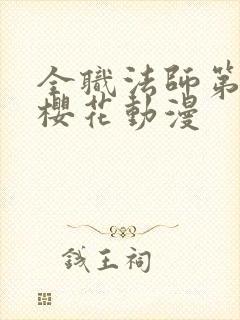 全職法師第
櫻花動漫
錢王祠